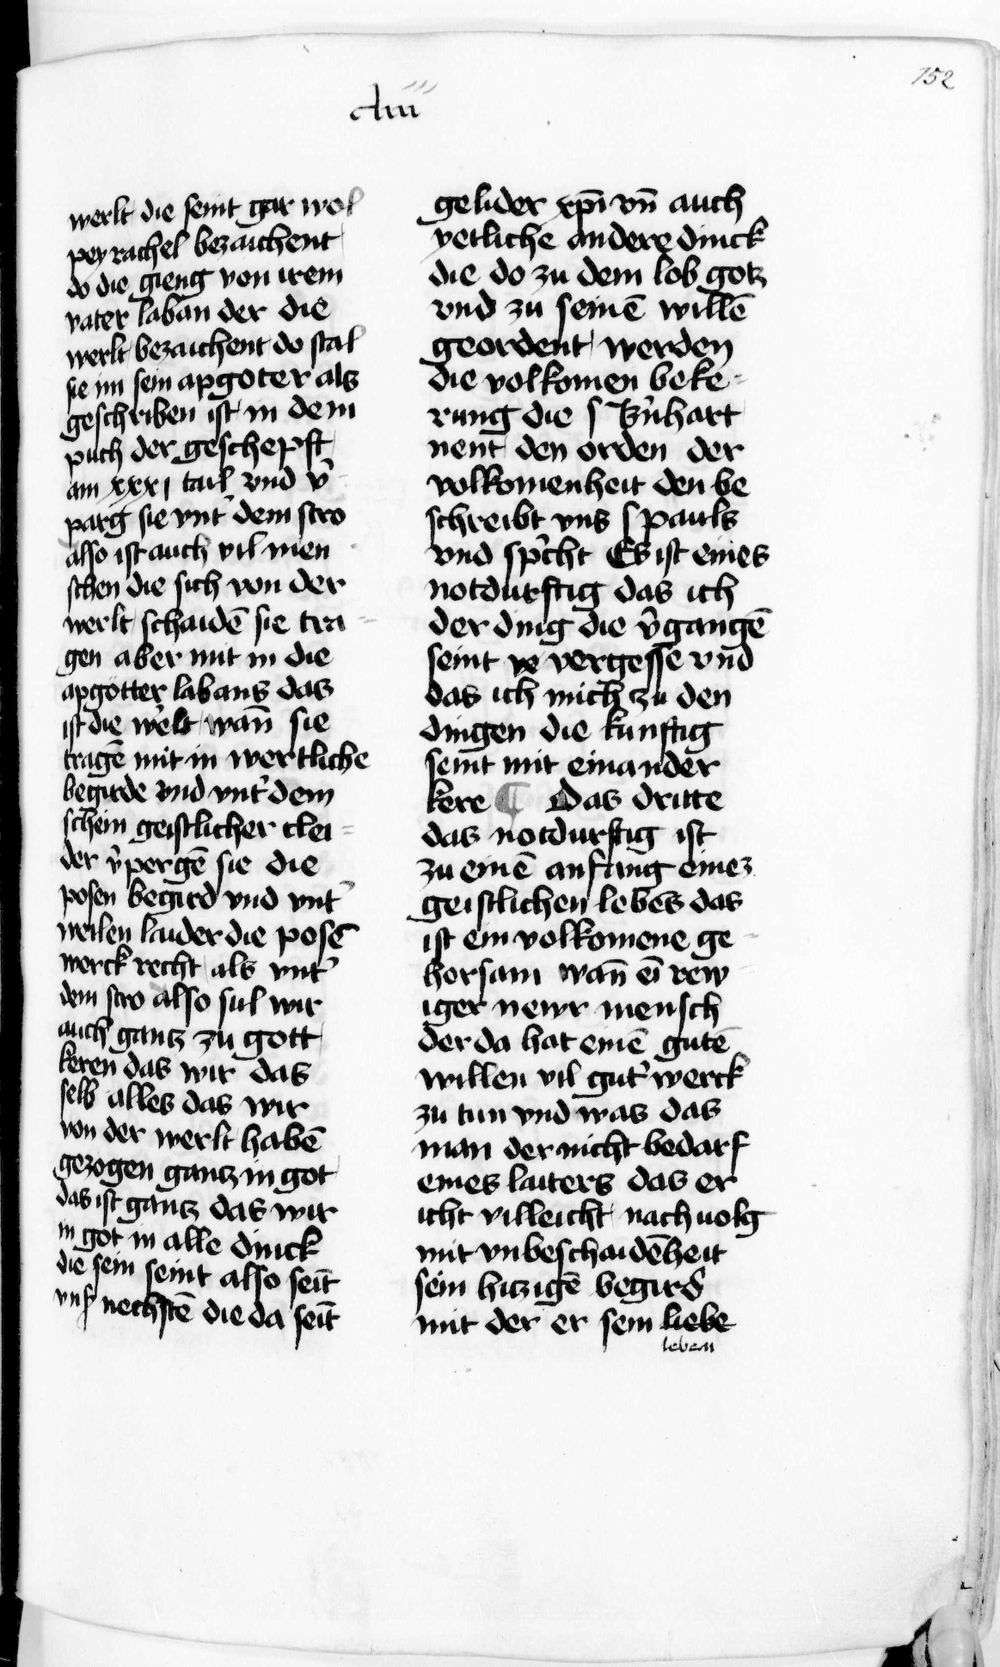 152
cliii
werlt die seint gar wol
pey rachel bezaichent
do die gieng von irem
vater laban der die
werlt bezaichent do stal
sie im sein apgoter als
geschriben ist in dem
puch der geschepft
am xxxi tail vnd v̾
parg sie vnt̾ dem stro
also ist auch vil men
schen die sich von der
werlt schaidē sie tra-
gen aber mit in die
apgotter labans das
ist die w̾elt wañ sie
tragē mit in wertliche
begirde vnd vnt̾ dem
schein geistlicher clei-
der v̾pergē sie die
posen begird vnd vnt̾
weilen laider die posē
werck recht als vnt̾
dem stro also sul wir
auch gantz zu gott
keren das wir das
selb alles das wir
von der werlt habē
gezogen gantz in got
das ist gantz das wir
in got in alle dinck
die sein seint also seīt
vns̾ nechstē die da seīt
gelider xp̄i vn̄ auch
yetliche andere dinck
die do zu dem lob gotz
vnd zu seinē willē
geordent werden
die volkomen beke-
rung die s b̾nhart
nent den orden der
volkomenheit den be
schreibt vns s pauls
vnd sp̾icht Es ist eines
notdurftig das ich
der ding die v̾gangē
seint ve vergesse vnd
das ich mich zu den
dingen die kunftig
seint mit einander
kere ¶ Das dritte
das notdurftig ist
zu einē anfang einez
geistlichen lebens das
ist ein volkomene ge-
horsam wañ eī rew-
iger newr mensch
der da hat einē gutē
willen vil gut̾ werck
zu tun vnd was das
man der nicht bedarf
eines laiters das er
icht villeicht nachuolg
mit vnbeschaidēheit
sein hitzigē begird
mit der er sein liebe
leben